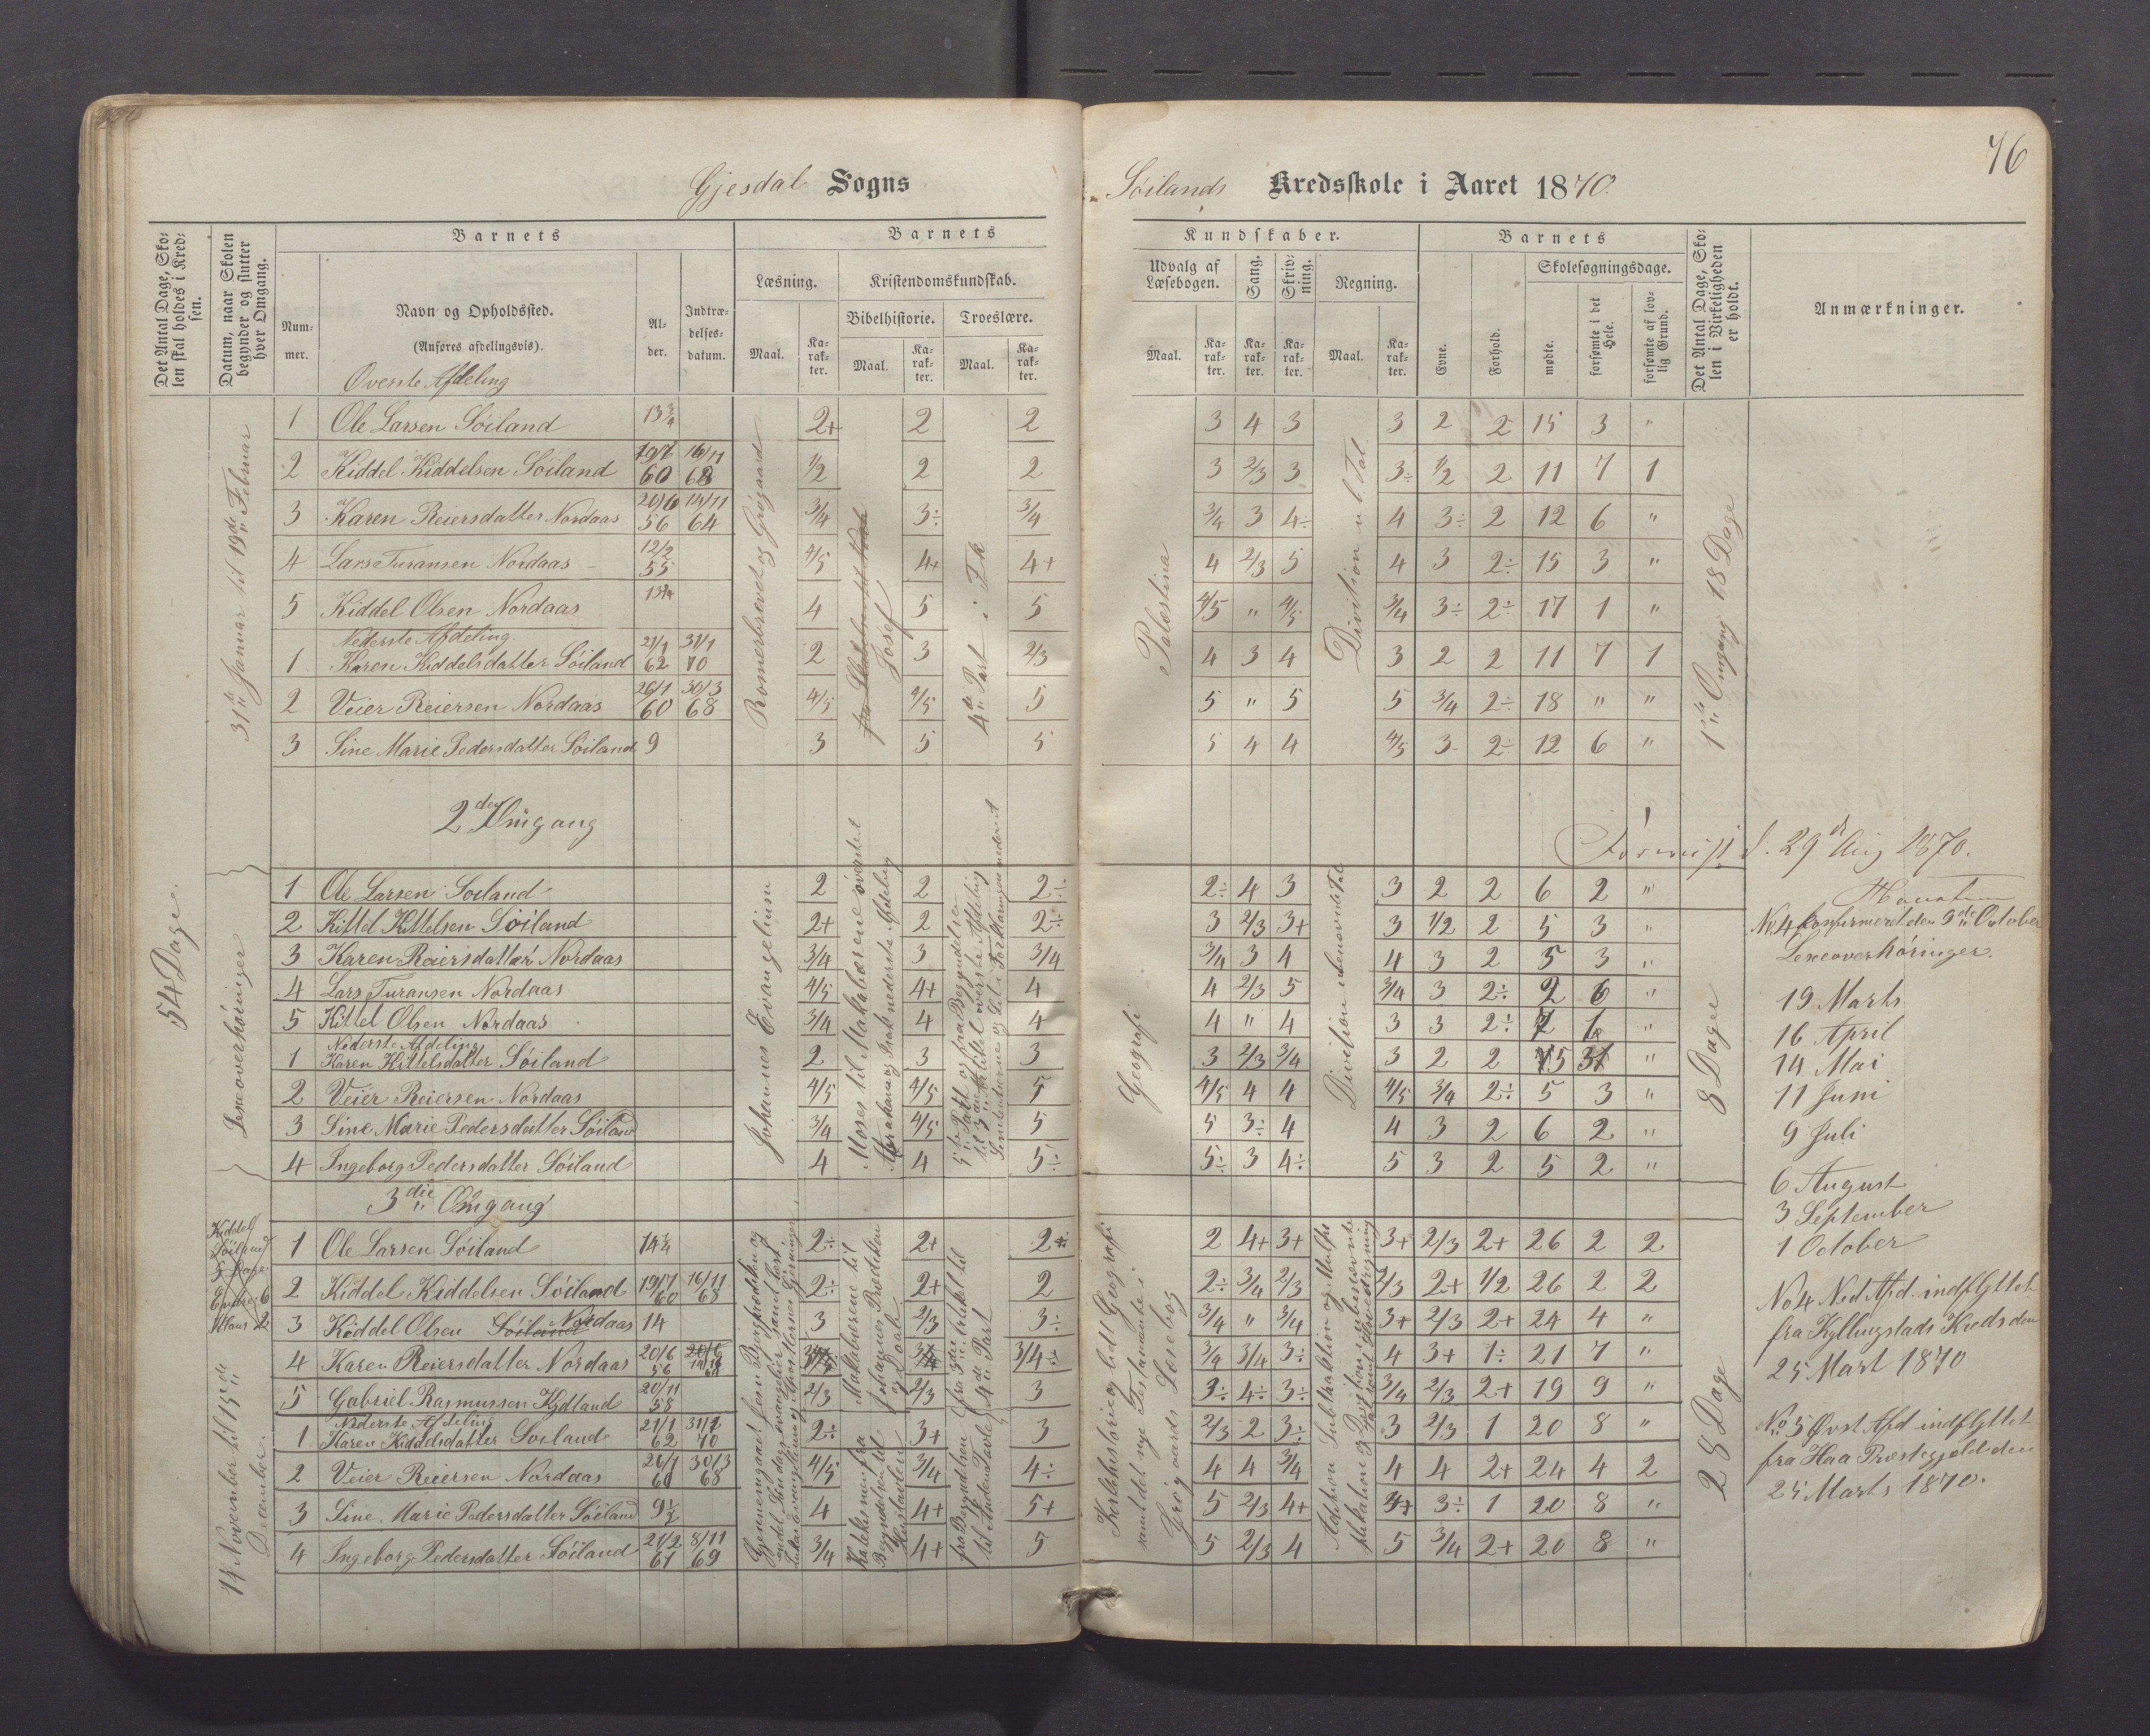 76
Gjesdal Sogns
Søilands Kredsskole i Aaret 1870.
Det Antal Dage, Skolen skal holdes i Kredsen.
Datum, naar Skolen begynder og slutter hver Omgang.
Barnets
Nummer.
Navn og Opholdssted.
(Anføres afdelingsvis).
Alder.
Indtrædelsesdatum.
Barnets
Læsning.
Maal.
Karakter.
Kristendomskundskab.
Bibelhistorie.
Maal.
Karakter.
Troeslære.
Maal.
Karakter.
Kundskaber.
Udvalg af Læsebogen.
Maal.
Karakter.
Sang.
Karakter.
Skrivning.
Karakter.
Regning.
Maal.
Karakter.
Barnets
Evne.
Forhold.
Skolesøgningsdage.
mødte.
forsømte i det Hele.
forsømte af lovlig Grund.
Det Antal Dage, Skolen i Virkeligheden er holdt.
Anmærkninger.
54 Dage.
Overste Afdeling
31te Januar til 19de Februar
Romerbrevet og Grøgaard
Josef
4de Part i F.k
Palæstina
Division u b Tal
1ste Omgang 18 Dage
1 Ole Larsen Søiland 13 3/4 2+ 2 2 3 4 3 3 2 2 15 3 "
2 Kiddel Kiddelsen Søiland 19/7 60 16/11 68 1/2 2 2 3 2/3 3 3÷ 1/2 2 11 7 1
3 Karen Reiersdatter Nordaas 20/6 56 14/11 64 3/4 3÷ 3/4 3/4 3 4÷ 4 3÷ 2 12 6 "
4 Lars Turansen Nordaas 12/2 55 4/5 4+ 4+ 4 2/3 5 4 3 2÷ 15 3 "
5 Kiddel Olsen Nordaas 13 3/4 4 5 5 4/5 " 4/5 3/4 3÷ 2÷ 17 1 "
Nederste Afdeling.
1 Karen Kiddelsdatter Søiland 21/1 62 31/1 70 2 3 2/3 4 3 4 3 2 2 11 7 1
2 Veier Reiersen Nordaas 26/1 60 30/3 68 4/5 4/5 5 5 " 5 5 3/4 2÷ 18 " "
3 Sine Marie Pedersdatter Søiland 9 3 5 5 5 4 4 4/5 3- 2÷ 12 6 "
2den Omgang
d. 29de Aug 1870.
Lexeoverhøringer
Johannes Evangelium
Moses til Makabæerne øverste
Abraham og Isak nederste Afdeling
5te Part og fra Begyndelsen
til 3die Artikel øverste Afdeling
Geografi
Division ubenevnte Tal
8 Dage
1 Ole Larsen Søiland 2 2 2÷ 2÷ 4 3 3 2 2 6 2 "
2 Kittel Kittelsen Søiland 2+ 2 2÷ 3 2/3 3+ 3 1/2 2 5 3 "
3 Karen Reiersdatter Nordaas 3/4 3 3/4 3/4 3 4 4 3 2 5 3 "
4 Lars Turansen Nordaas 4/5 4+ 4 4 2/3 5 3/4 3 2÷ 2 6 "
5 Kittel Olsen Nordaas 3/4 4 4 4 " 4 3 3 2÷ 2 6 "
Nederste Afdeling
1 Karen Kittelsdatter Søiland 2 3 3 3 2/3 3/4 3 2 2 5 3 "
2 Veier Reiersen Nordaas 4/5 4/5 5 4/5 4 4 4/5 3/4 2÷ 5 3 "
3 Sine Marie Pedersdatter Søiland 3/4 4/5 5 5 3÷ 4 4 3 2 6 2 "
4 Ingeborg Pedersdatter Søiland 4 4 5÷ 5÷ 3 4÷ 5 3 2 5 2 "
3die Omgang
14 November til 15de December.
Kiddel Søiland 5 Dage
Gjennemgaaet Jesu Bergprædiken og
endel Søndagsevangelier samt læst
Lukas Evangelium og Apostlernes Gjerninger
Makabæerne til
Johannes Prædiken
og Daab
fra 3die Artikel til
4de Part
fra Begyndelsen
til Anden Tavle
Kirkehistorie og lidt Geografi
samt det nye Testamente i
Grøgaards Læsebog
Addition Subtraktion og Multiplikation og Division i ubenevnte
28 Dage
1 Ole Larsen Søiland 14 1/4 2÷ 2+ 2÷ 2 4+ 3+ 3+ 2/3 2+ 26 2 2
2 Kiddel Kiddelsen Søiland 19/7 60 16/11 68 2÷ 2+ 2 2÷ 3/4 2/3 2/3 2+ 1/2 26 2 2
3 Kiddel Olsen Søiland Nordaas 14 3 2/3 3÷ 3/4 " 3/4 3+ 2/3 2+ 24 4 "
4 Karen Reiersdatter Nordaas 20/6 56 14/11 64 3/4÷ 3/4 3/4 3÷ 4 3+ 1÷ 21 7 "
5 Gabriel Rasmussen Kydland 20/11 58 2/3 2/3 3 3÷ 4÷ 3÷ 3/4 2/3 2+ 19 9 "
Nederste Afdeling
1 Karen Kiddelsdatter Søiland 21/1 62 31/1 70 2÷ 3+ 3 2/3 2 3÷ 3 2/3 1 20 8 "
2 Veier Reiersen Nordaas 26/1 60 30/3 68 4/5 3/4 4÷ 4 4 3/4 4 4 2+ 24 4 2
3 Sine Marie Pedersdatter Søiland 9 1/2 4 4+ 5+ 5 2/3 4+ 3+ 3÷ 1 20 8 "
4 Ingeborg Pedersdatter Søiland 21/2 61 8/11 69 3/4 4+ 5 5 2/3 4 5 3/4 2+ 20 8 "
No 4 konfirmeret den 9de October
Lexeoverhøringer.
19 Marts
16 April
14 Mai
11 Juni
9 Juli
6 August
3 September
1 October
No 4 Ned Afd. indflyttet
fra Kyllingstads Kreds den
25 Mart 1870
No 5 Øvst Afd indflyttet
fra Haa Præstegjeld den
25 Marts 1870.